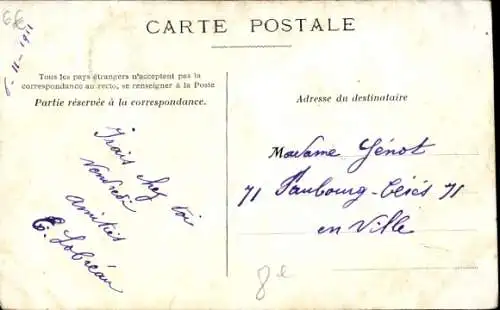 6€
6-11-1911
CARTE POSTALE
Tous les pays étrangers n'acceptent pas la
correspondance au recto, se renseigner à la Poste
Partie réservée à la correspondance.
Adresse du destinataire
J'irais chez toi
Vendredi
amitiés
E. Lobréau
Madame Génot
71 Faubourg-Cérès 71
en Ville
8€